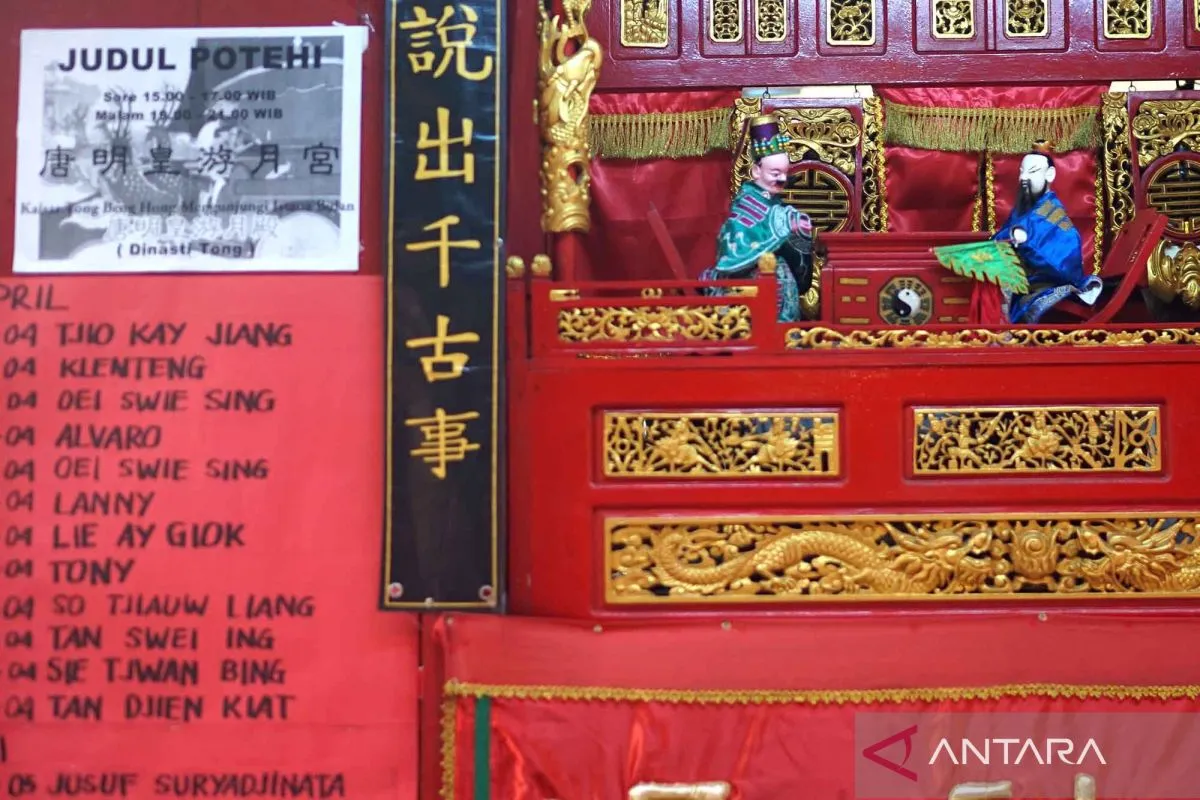 JUDUL POTEHI
Sore 15.00 - 17.00 WIB
Malam 18.00 - 21.00 WIB
唐明皇游月宮
Kaisar Tong Beng Hong Mengunjungi Istana Bulan
( Dinasti Tong )
PRIL
04 TJIO KAY JIANG
04 KLENTENG
04 OEI SWIE SING
04 ALVARO
04 OEI SWIE SING
04 LANNY
04 LIE AY GIOK
04 TONY
04 SO TJIAUW LIANG
04 TAN SWEI ING
04 SIE TJWAN BING
04 TAN DJIEN KIAT
05 JUSUF SURYADJINATA
說出千古事
ANTARA